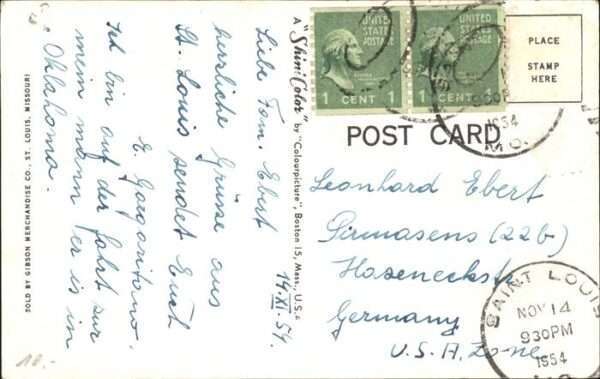 SOLD BY GIBSON MERCHANDISE CO., ST. LOUIS, MISSOURI
14.XI.54
Liebe Fam. Ebert
herrliche Grüsse aus
St. Louis sendet Euch
E.
Ich bin auf der Fahrt zur
mein mann er is in
Oklahoma.
10.-
A "Shini-Color" by "Colourpicture", Boston 15, Mass., U.S.A.
UNITED
STATES
POSTAGE
1 CENT 1
UNITED
STATES
POSTAGE
1 CENT 1
1954
MO.
PLACE
STAMP
HERE
POST CARD
Leonhard Ebert
Pirmasens (22b)
Haseneckstr.
Germany
U.S.A. Zone
SAINT LOUIS
NOV 14
930PM
1954
MO.